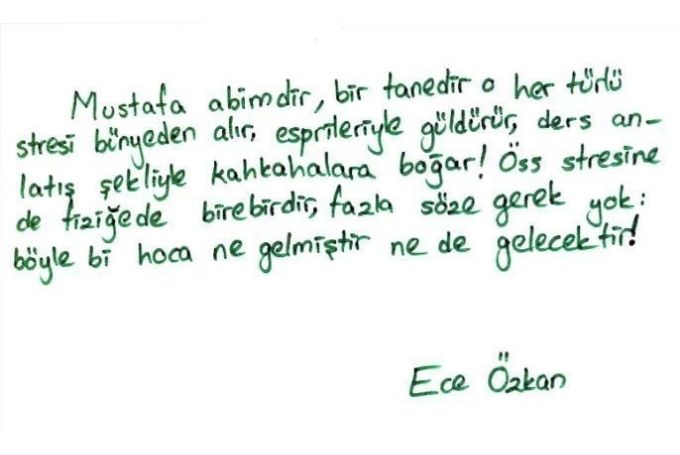 Mustafa abimdir, bir tanedir o her türlü
stresi bünyeden alır, esprileriyle güldürür, ders an-
latış şekliyle kahkahalara boğar! Öss stresine
de fiziğede birebirdir, fazla söze gerek yok:
böyle bi hoca ne gelmiştir ne de gelecektir!
Ece Özkan